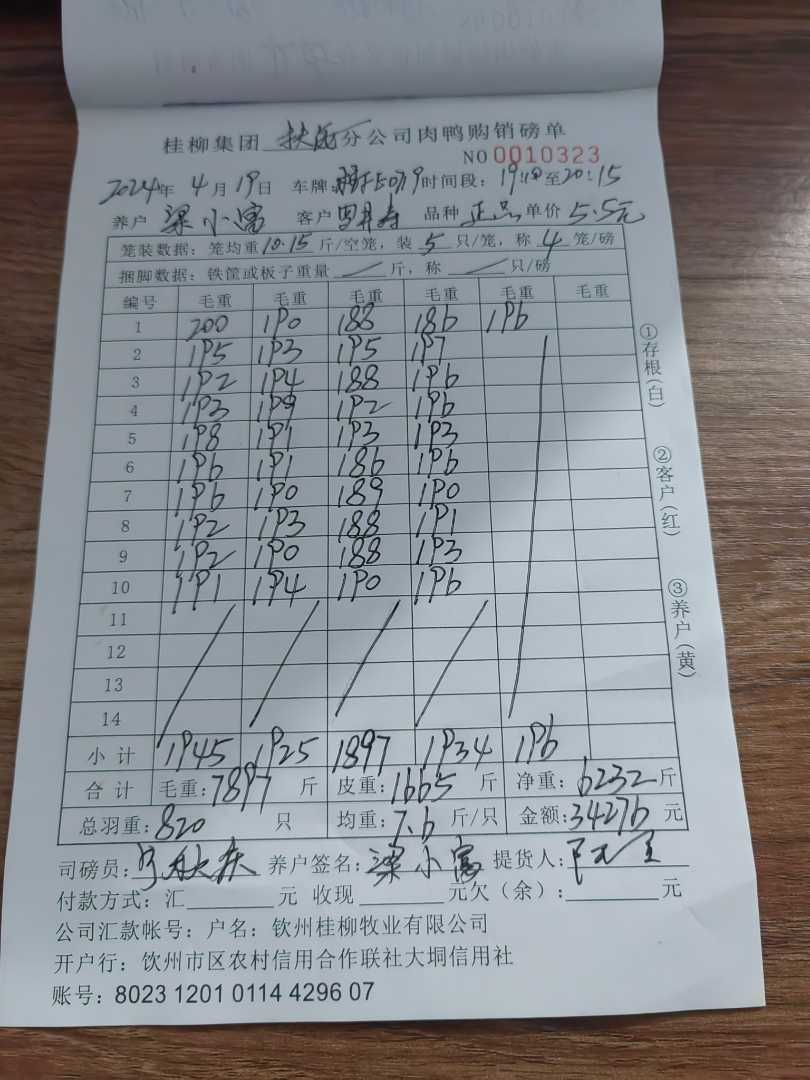 桂柳集团 分公司肉鸭购销磅单
NO 0010323
2024年 4月19日 车牌: 时间段: 至20:15
养户 梁小富 客户 品种 正品 单价 5.5元
笼装数据: 笼均重10.15斤/空笼, 装 5 只/笼, 称 4 笼/磅
捆脚数据: 铁筐或板子重量 / 斤, 称 / 只/磅
编号 毛重 毛重 毛重 毛重 毛重 毛重
1 200 190 188 186 196
2 195 193 195 197
3 192 194 188 196
4 193 199 192 196
5 198 191 193 193
6 196 191 186 196
7 196 190 189 190
8 192 193 188 191
9 192 190 188 193
10 191 194 190 196
11
12
13
14
小计 1945 1925 1897 1934 196
合计 毛重: 7897 斤 皮重: 1665 斤 净重: 6232 斤
总羽重: 820 只 均重: 7.6 斤/只 金额: 34276 元
司磅员: 养户签名: 梁小富 提货人:
付款方式: 汇 元 收现 元欠(余): 元
公司汇款帐号: 户名: 钦州桂柳牧业有限公司
开户行: 钦州市区农村信用合作联社大垌信用社
账号: 8023 1201 0114 4296 07
①存根(白)
②客户(红)
③养户(黄)